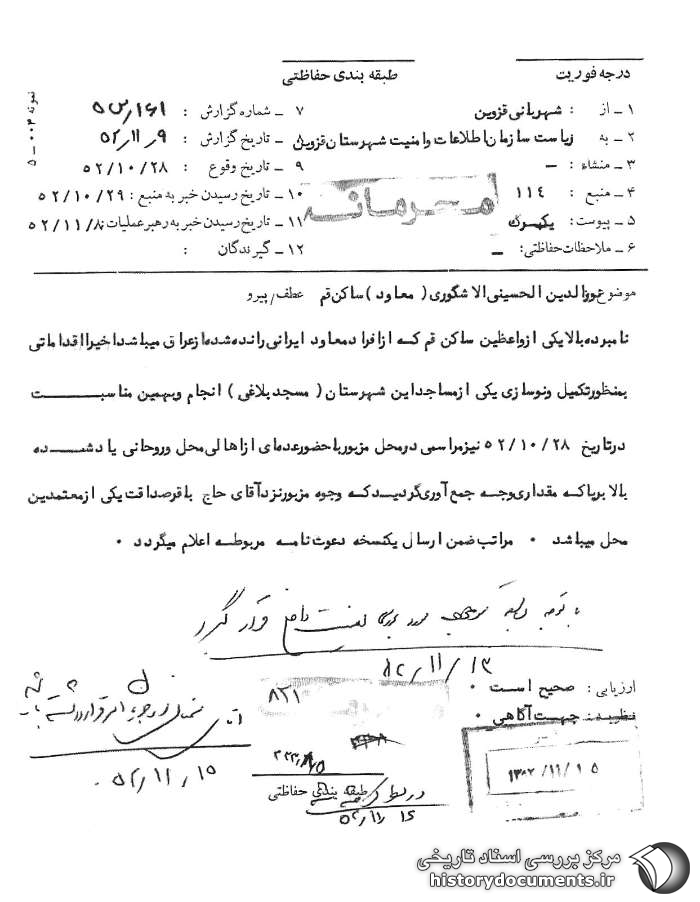 درجه فوریت
طبقه بندی حفاظتی
نمونه ۰۰۳ – ۵
۱ – از : شهربانی قزوین
۲ – به ریاست سازمان اطلاعات وامنیت شهرستان قزوین
۳ – منشاء : –
۴ – منبع : ۱۱۴
۵ – پیوست : یکبرگ
۶ – ملاحظات حفاظتی: –
۷ – شماره گزارش :
۸ – تاریخ گزارش : ۵۲/۱۱/۹
۹ – تاریخ وقوع : ۵۲/۱۰/۲۸
۱۰ – تاریخ رسیدن خبر به منبع : ۵۲/۱۰/۲۹
۱۱ – تاریخ رسیدن خبر به رهبر عملیات : ۵۲/۱۱/۸
۱۲ – گیرندگان :
محرمانه
موضوع نورالدین الحسینی الاشکوری ( معاود ) ساکن قم عطف/پیرو
نامبرده بالا یکی ازواعظین ساکن قم که ازافراد معاود ایرانی رانده شده از عراق میباشد اخیرا اقداماتی
بمنظور تکمیل ونوسازی یکی ازمساجد این شهرستان ( مسجد بلاغی ) انجام وبهمین مناسبت
درتاریخ ۵۲/۱۰/۲۸ نیز مراسمی درمحل مزبور باحضور عده‌ای ازاهالی محل وروحانی یادشده
بالا برپا که مقداری وجه جمع آوری گردید که وجوه مزبور نزد آقای حاج باقر صداقت یکی ازمعتمدین
محل میباشد ۰ مراتب ضمن ارسال یکنسخه دعوت نامه مربوطه اعلام میگردد ۰
با توجه به قرار گیرد
۵۲/۱۱/۱۳
ارزیابی : صحیح است ۰
نظریه : جهت آگاهی ۰
۸۲۱
۵۲/۱۱/۱۵
۱۳۵۲/۱۱/۱۵
طبقه بندی حفاظتی
۵۲/۱۱/۱۶
مرکز بررسی اسناد تاریخی
historydocuments.ir